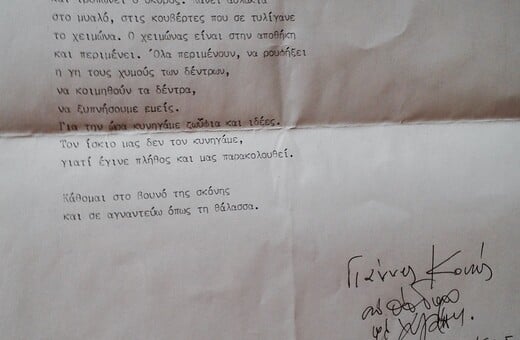 και τρυπώνει ο σκόρος. Κάνει αυλάκια
στο μυαλό, στις κουβέρτες που σε τυλίγανε
το χειμώνα. Ο χειμώνας είναι στην αποθήκη
και περιμένει. Όλα περιμένουν, να ρουφήξει
η γη τους χυμούς των δέντρων,
να κοιμηθούν τα δέντρα,
να ξυπνήσουμε εμείς.
Για την ώρα κυνηγάμε ζωύφια και ιδέες.
Τον ίσκιο μας δεν τον κυνηγάμε,
γιατί έγινε πλήθος και μας παρακολουθεί.
Κάθομαι στο βουνό της σκόνης
και σε αγναντεύω όπως τη θάλασσα.
Γιάννης